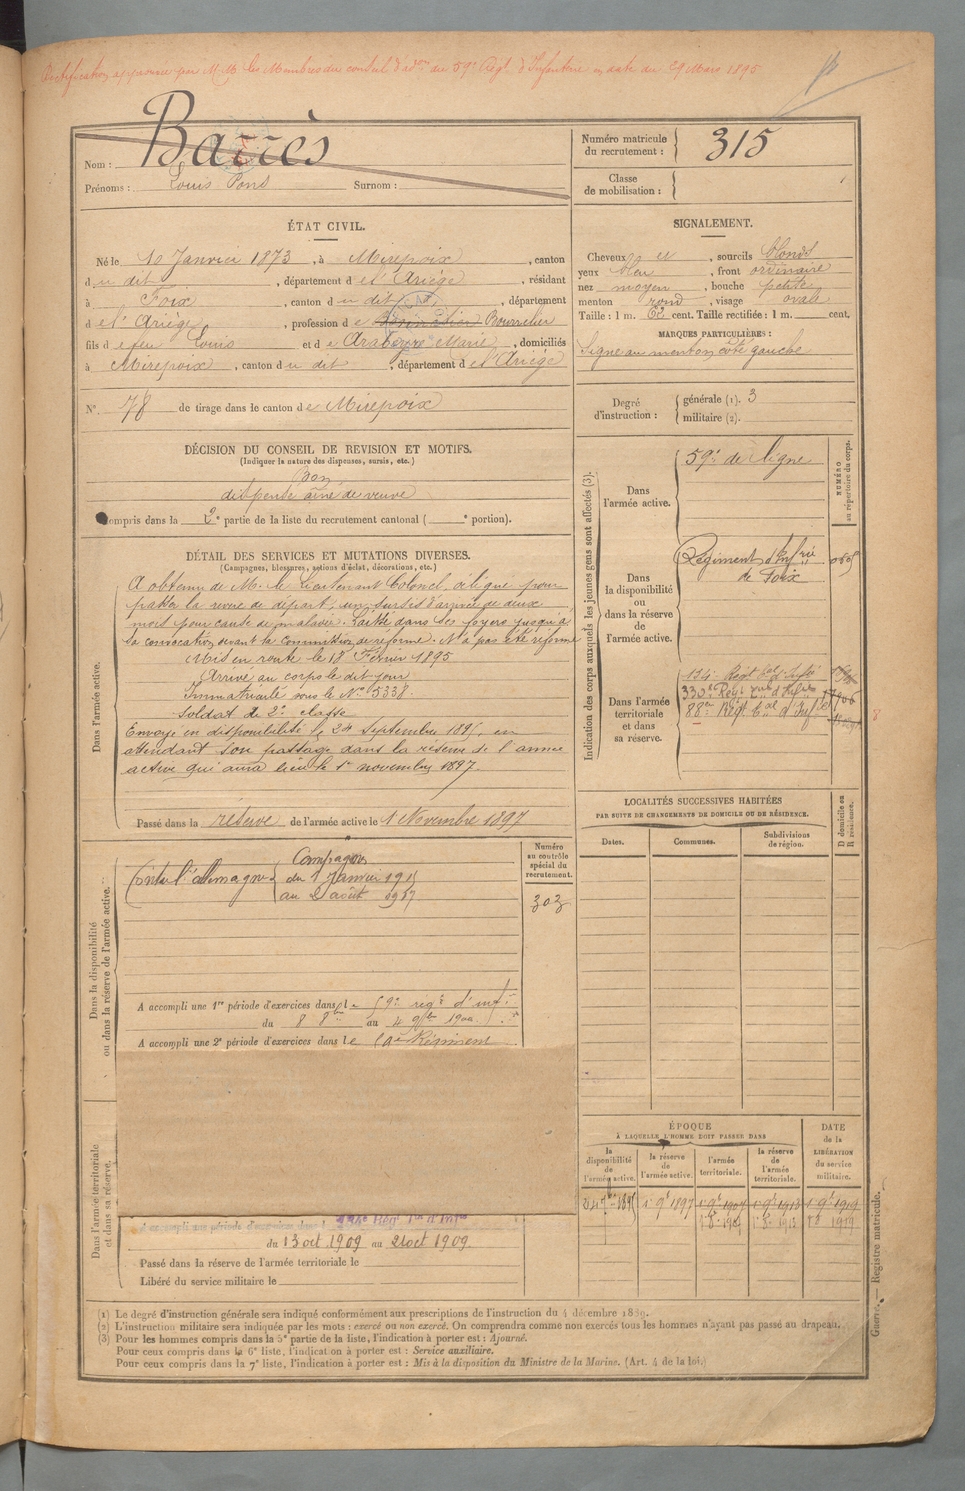 Rectification approuvée par M.M. les Membres du conseil d'adon du 59e Régt d'Infanterie en date du 29 Mars 1895
Barrès
Nom :
Prénoms : Louis Pons Surnom :
Numéro matricule du recrutement : 315
Classe de mobilisation :
ÉTAT CIVIL.
Né le 10 Janvier 1873, à Mirepoix, canton
du dit, département de l'Ariège, résidant
à Foix, canton du dit, département
de l'Ariège, profession de Bourrelier
fils de feu Louis et de Arabeyre Marie, domiciliés
à Mirepoix, canton du dit, département de l'Ariège
N° 78 de tirage dans le canton de Mirepoix
SIGNALEMENT.
Cheveux et, sourcils blonds
yeux bleu, front ordinaire
nez moyen, bouche petite
menton rond, visage ovale
Taille : 1 m. 62 cent. Taille rectifiée : 1 m. cent.
MARQUES PARTICULIÈRES :
Signe au menton côté gauche
Degré d'instruction : générale (1). 3
militaire (2).
DÉCISION DU CONSEIL DE REVISION ET MOTIFS.
(Indiquer la nature des dispenses, sursis, etc.)
Bon
dispensé aîné de veuve
Compris dans la 2e partie de la liste du recrutement cantonal ( e portion).
DÉTAIL DES SERVICES ET MUTATIONS DIVERSES.
(Campagnes, blessures, actions d'éclat, décorations, etc.)
Dans l'armée active.
A obtenu de M. le Lieutenant Colonel, délégué pour
passer la revue de départ, un sursis d'arrivée de deux
mois pour cause de maladie. Laissé dans ses foyers jusqu'à
sa convocation devant la Commission de réforme. N'a pas été réformé
Mis en route le 18 Février 1895
Arrivé au corps le dit jour
Immatriculé sous le No 5338
Soldat de 2e classe
Envoyé en disponibilité le 24 Septembre 1895, en
attendant son passage dans la réserve de l'armée
active qui aura lieu le 1er novembre 1897.
Passé dans la réserve de l'armée active le 1 Novembre 1897
Indication des corps auxquels les jeunes gens sont affectés (3).
NUMÉRO au répertoire du corps.
Dans l'armée active.
59e de ligne
Dans la disponibilité ou dans la réserve de l'armée active.
Régiment d'Infrie
de Foix
Dans l'armée territoriale et dans sa réserve.
134e Régt tal d'Infie
330e Régt
88e Régt tal d'Infie
LOCALITÉS SUCCESSIVES HABITÉES
PAR SUITE DE CHANGEMENTS DE DOMICILE OU DE RÉSIDENCE.
Dates. Communes. Subdivisions de région. D domicile ou R résidence.
Dans la disponibilité ou dans la réserve de l'armée active.
Numéro au contrôle spécial du recrutement.
303
Campagnes
Contre l'Allemagne du 1 Janvier 1915
au 2 août 1917
A accompli une 1re période d'exercices dans le 59e regt d'infie
du 8 8bre au 4 9bre 1900
A accompli une 2e période d'exercices dans le Régiment
Dans l'armée territoriale et dans sa réserve.
A accompli une période d'exercices dans le 134e Régt Tal d'Infie
du 13 oct. 1909 au 21 oct 1909.
Passé dans la réserve de l'armée territoriale le
Libéré du service militaire le
ÉPOQUE
À LAQUELLE L'HOMME DOIT PASSER DANS
la disponibilité de l'armée active. la réserve de l'armée active. l'armée territoriale. la réserve de l'armée territoriale. DATE de la LIBÉRATION du service militaire.
24 7bre 1895 1 9e 1897 1 9e 1907 1 9e 1913 1 9e 1919
1 8e 1913 1919
Guerre. — Registre matricule.
(1) Le degré d'instruction générale sera indiqué conformément aux prescriptions de l'instruction du 4 décembre 1889.
(2) L'instruction militaire sera indiquée par les mots : exercé ou non exercé. On comprendra comme non exercés tous les hommes n'ayant pas passé au drapeau.
(3) Pour les hommes compris dans la 5e partie de la liste, l'indication à porter est : Ajourné.
Pour ceux compris dans la 6e liste, l'indication à porter est : Service auxiliaire.
Pour ceux compris dans la 7e liste, l'indication à porter est : Mis à la disposition du Ministre de la Marine. (Art. 4 de la loi.)